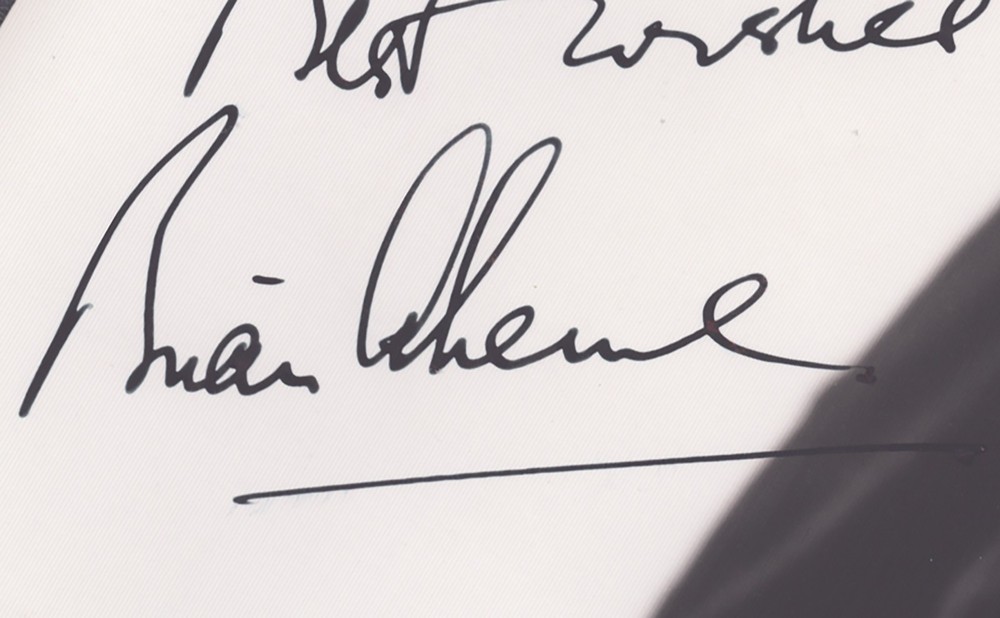 Best wishes
Brian Aherne